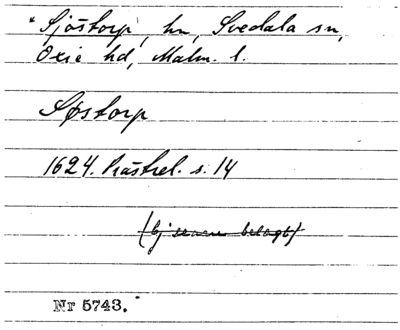 "Sjöstorp", hn, Svedala sn,
Oxie hd, Malm. l.
Søstorp
1624. Prästrel. s. 14
(Ej senare belagt)
Nr 5743.